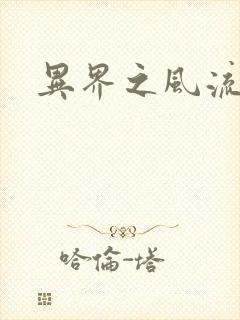 異界之風流
哈倫-塔